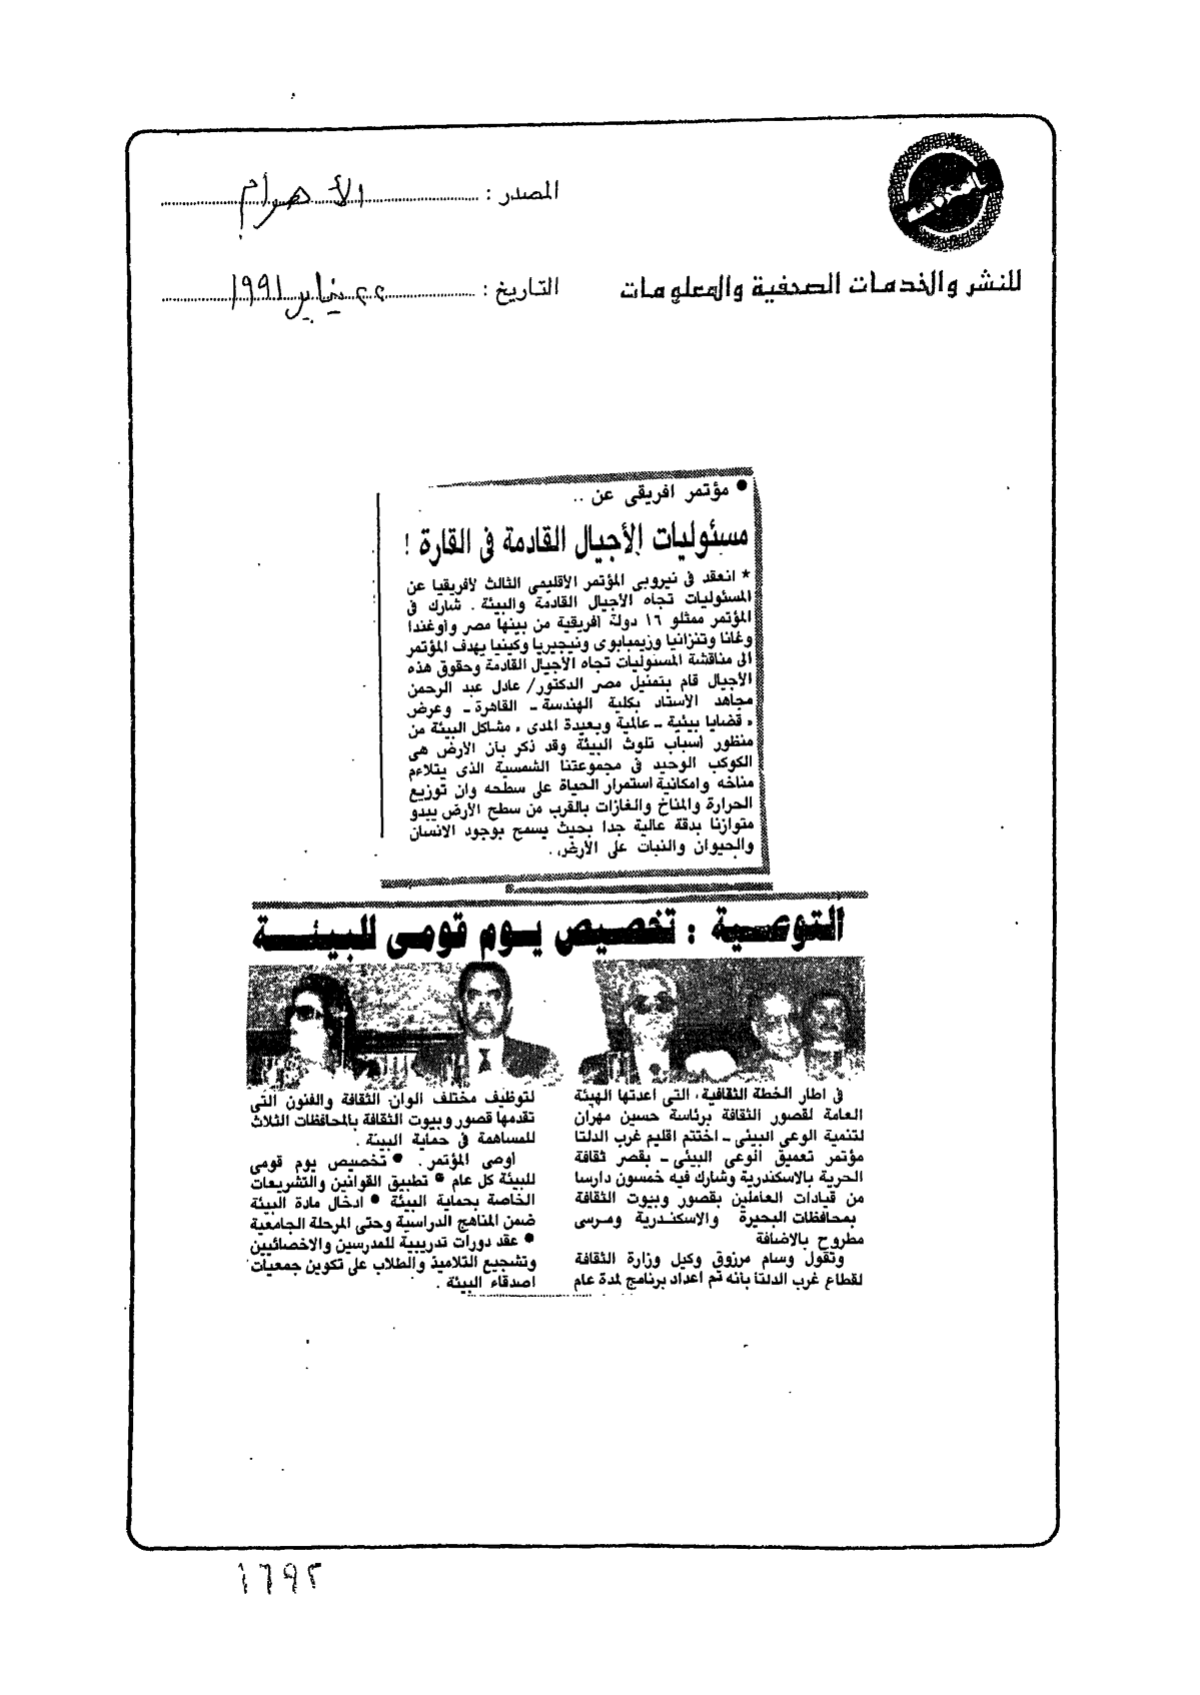 المصدر : الأهرام
للنشر والخدمات الصحفية والمعلومات
التاريخ : ٢٢ يناير ١٩٩١
● مؤتمر افريقى عن ..
مسئوليات الأجيال القادمة فى القارة !
* انعقد فى نيروبى المؤتمر الأقليمى الثالث لأفريقيا عن
المسئوليات تجاه الأجيال القادمة والبيئة . شارك فى
المؤتمر ممثلو ١٦ دولة افريقية من بينها مصر واوغندا
وغانا وتنزانيا وزيمبابوى ونيجيريا وكينيا يهدف المؤتمر
الى مناقشة المسئوليات تجاه الأجيال القادمة وحقوق هذه
الأجيال قام بتمثيل مصر الدكتور/ عادل عبد الرحمن
مجاهد الأستاذ بكلية الهندسة ـ القاهرة ـ وعرض
« قضايا بيئية ـ عالمية وبعيدة المدى » مشاكل البيئة من
منظور أسباب تلوث البيئة وقد ذكر بأن الأرض هى
الكوكب الوحيد فى مجموعتنا الشمسية الذى يتلاءم
مناخه وامكانية استمرار الحياة على سطحه وان توزيع
الحرارة والمناخ والغازات بالقرب من سطح الأرض يبدو
متوازنا بدقة عالية جدا بحيث يسمح بوجود الانسان
والحيوان والنبات على الأرض .
التوصية : تخصيص يوم قومى للبيئة
فى اطار الخطة الثقافية، التى اعدتها الهيئة
العامة لقصور الثقافة برئاسة حسين مهران
لتنمية الوعى البيئى ـ اختتم اقليم غرب الدلتا
مؤتمر تعميق الوعى البيئى ـ بقصر ثقافة
الحرية بالاسكندرية وشارك فيه خمسون دارسا
من قيادات العاملين بقصور وبيوت الثقافة
بمحافظات البحيرة والاسكندرية ومرسى
مطروح بالاضافة
وتقول وسام مرزوق وكيل وزارة الثقافة
لقطاع غرب الدلتا بانه تم اعداد برنامج لمدة عام
لتوظيف مختلف الوان الثقافة والفنون التى
تقدمها قصور وبيوت الثقافة بالمحافظات الثلاث
للمساهمة فى حماية البيئة .
أوصى المؤتمر . ● تخصيص يوم قومى
للبيئة كل عام ● تطبيق القوانين والتشريعات
الخاصة بحماية البيئة ● ادخال مادة البيئة
ضمن المناهج الدراسية وحتى المرحلة الجامعية
● عقد دورات تدريبية للمدرسين والاخصائيين
وتشجيع التلاميذ والطلاب على تكوين جمعيات
اصدقاء البيئة .
١٦٩٢